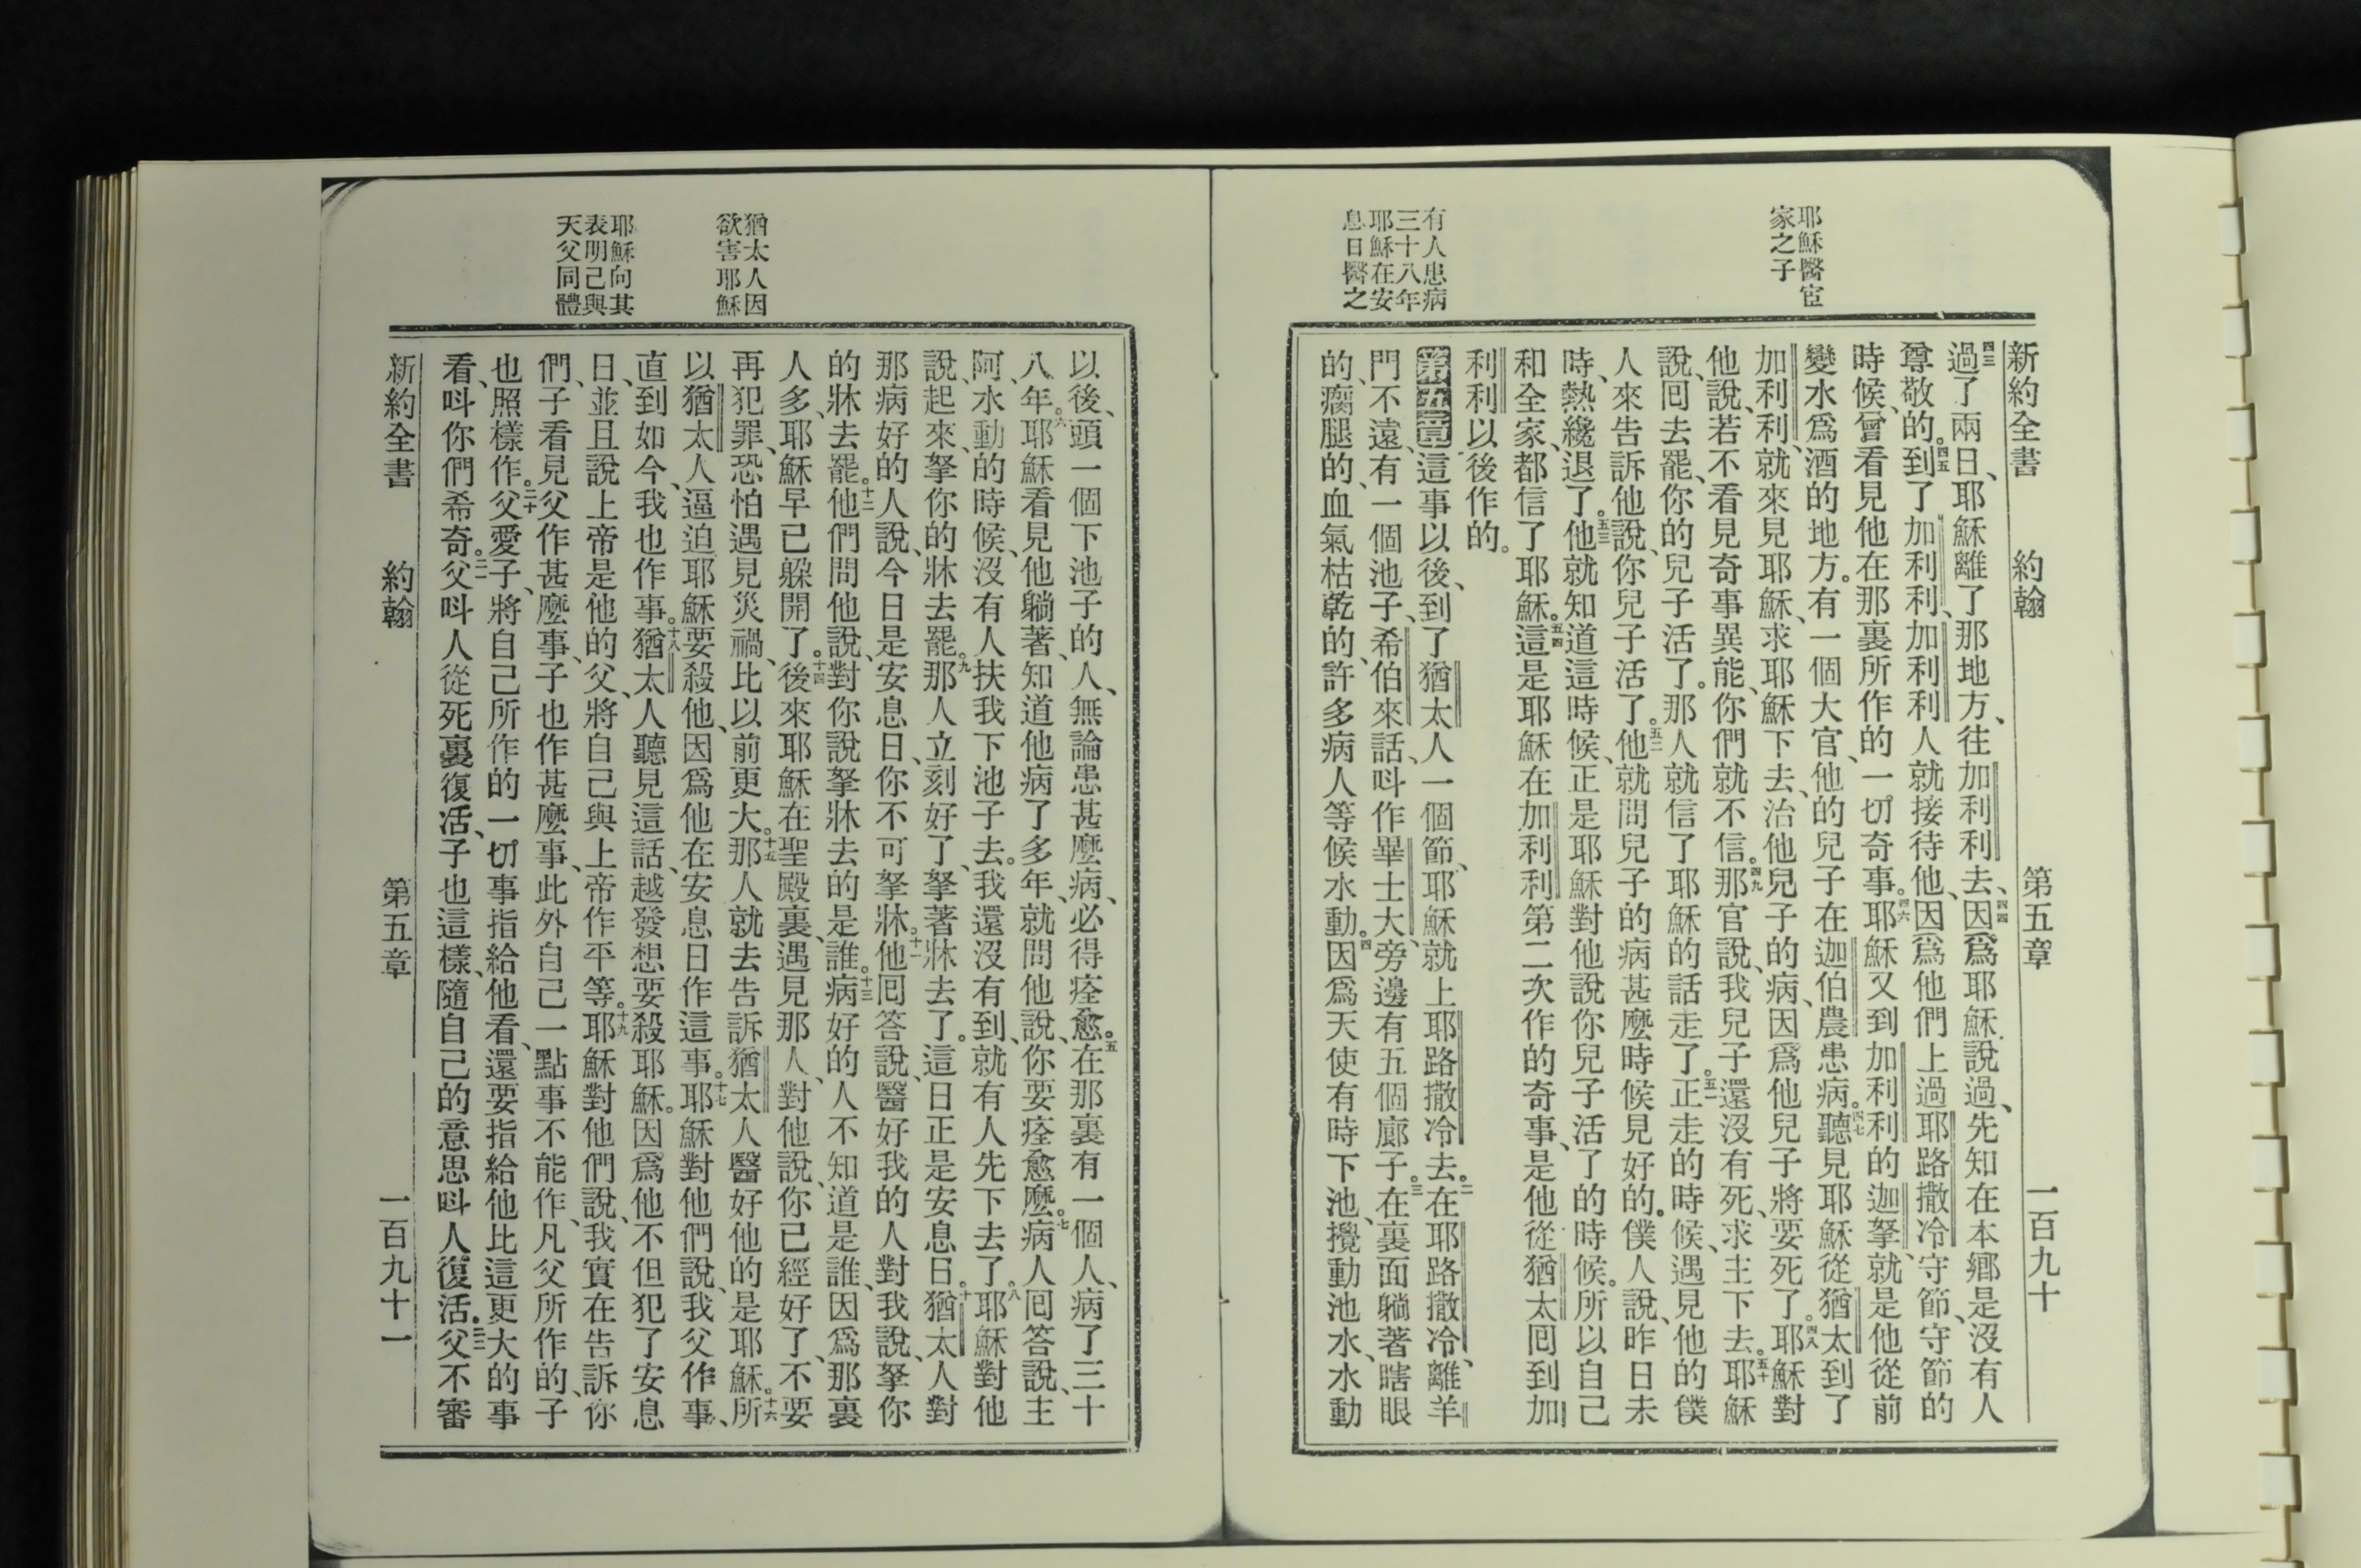 耶穌醫宦
家之子
有人患病
三十八年
耶穌在安
息日醫之
新約全書 約翰 第五章 一百九十
四三過了兩日、耶穌離了那地方、往加利利去、四四因爲耶穌說過、先知在本鄉是沒有人
尊敬的。四五到了加利利、加利利人就接待他、因爲他們上過耶路撒冷守節、守節的
時候、曾看見他在那裏所作的一切奇事。四六耶穌又到加利利的迦拏、就是他從前
變水爲酒的地方。有一個大官、他的兒子在迦伯農患病。四七聽見耶穌從猶太到了
加利利、就來見耶穌、求耶穌下去、治他兒子的病、因爲他兒子將要死了。四八耶穌對
他說、若不看見奇事異能、你們就不信。四九那官說、我兒子還沒有死、求主下去。五十耶穌
說、囘去罷、你的兒子活了。那人就信了耶穌的話走了。五一正走的時候、遇見他的僕
人來告訴他說、你兒子活了。五二他就問兒子的病甚麼時候見好的。僕人說、昨日未
時、熱纔退了。五三他就知道這時候、正是耶穌對他說你兒子活了的時候。所以自己
和全家、都信了耶穌。五四這是耶穌在加利利第二次作的奇事、是他從猶太囘到加
利利以後作的。
第五章這事以後、到了猶太人一個節、耶穌就上耶路撒冷去。二在耶路撒冷、離羊
門不遠、有一個池子、希伯來話、呌作畢士大、旁邊有五個廊子。三在裏面躺著瞎眼
的、瘸腿的、血氣枯乾的、許多病人等候水動。四因爲天使有時下池、攪動池水、水動
以後、頭一個下池子的人、無論患甚麼病、必得痊愈。五在那裏有一個人、病了三十
八年。六耶穌看見他躺著、知道他病了多年、就問他說、你要痊愈麼。七病人囘答說、主
阿、水動的時候、沒有人扶我下池子去。我還沒有到、就有人先下去了。八耶穌對他
說、起來、拏你的牀去罷。九那人立刻好了、拏著牀去了。這日正是安息日。十猶太人對
那病好的人說、今日是安息日、你不可拏牀。十一他囘答說、醫好我的人對我說、拏你
的牀去罷。十二他們問他說、對你說拏牀去的是誰。十三病好的人不知道是誰、因爲那裏
人多、耶穌早已躱開了。十四後來耶穌在聖殿裏、遇見那人、對他說、你已經好了、不要
再犯罪、恐怕遇見災禍、比以前更大。十五那人就去告訴猶太人醫好他的是耶穌。十六所
以猶太人逼迫耶穌要殺他、因爲他在安息日作這事。十七耶穌對他們說、我父作事、
直到如今、我也作事。十八猶太人聽見這話、越發想要殺耶穌。因爲他不但犯了安息
日、並且說上帝是他的父、將自己與上帝作平等。十九耶穌對他們說、我實在告訴你
們、子看見父作甚麼事、子也作甚麼事、此外自己一點事不能作、凡父所作的、子
也照樣作。二十父愛子、將自己所作的一切事指給他看、還要指給他比這更大的事
看、呌你們希奇。二一父呌人從死裏復活、子也這樣、隨自己的意思呌人復活。二二父不審
新約全書 約翰 第五章 一百九十一
猶太人因
欲害耶穌
耶穌向其
表明己與
天父同體